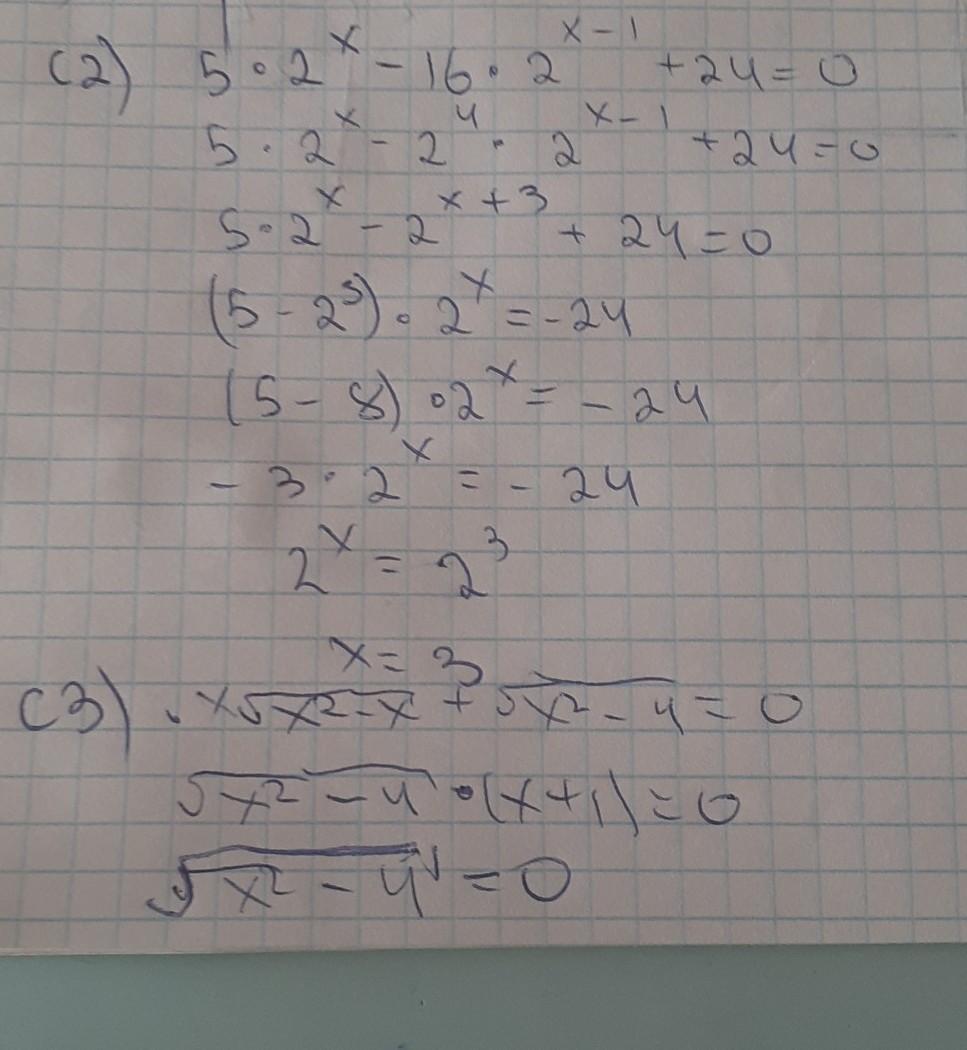 C2) 5 · 2^x - 16 · 2^{x-1} + 24 = 0
5 · 2^x - 2^4 · 2^{x-1} + 24 = 0
5 · 2^x - 2^{x+3} + 24 = 0
(5 - 2^3) · 2^x = -24
(5 - 8) · 2^x = -24
-3 · 2^x = -24
2^x = 2^3
x = 3
C3) . x√(x²-x) + √(x²-4) = 0
√(x²-4) · (x+1) = 0
√(x²-4) = 0